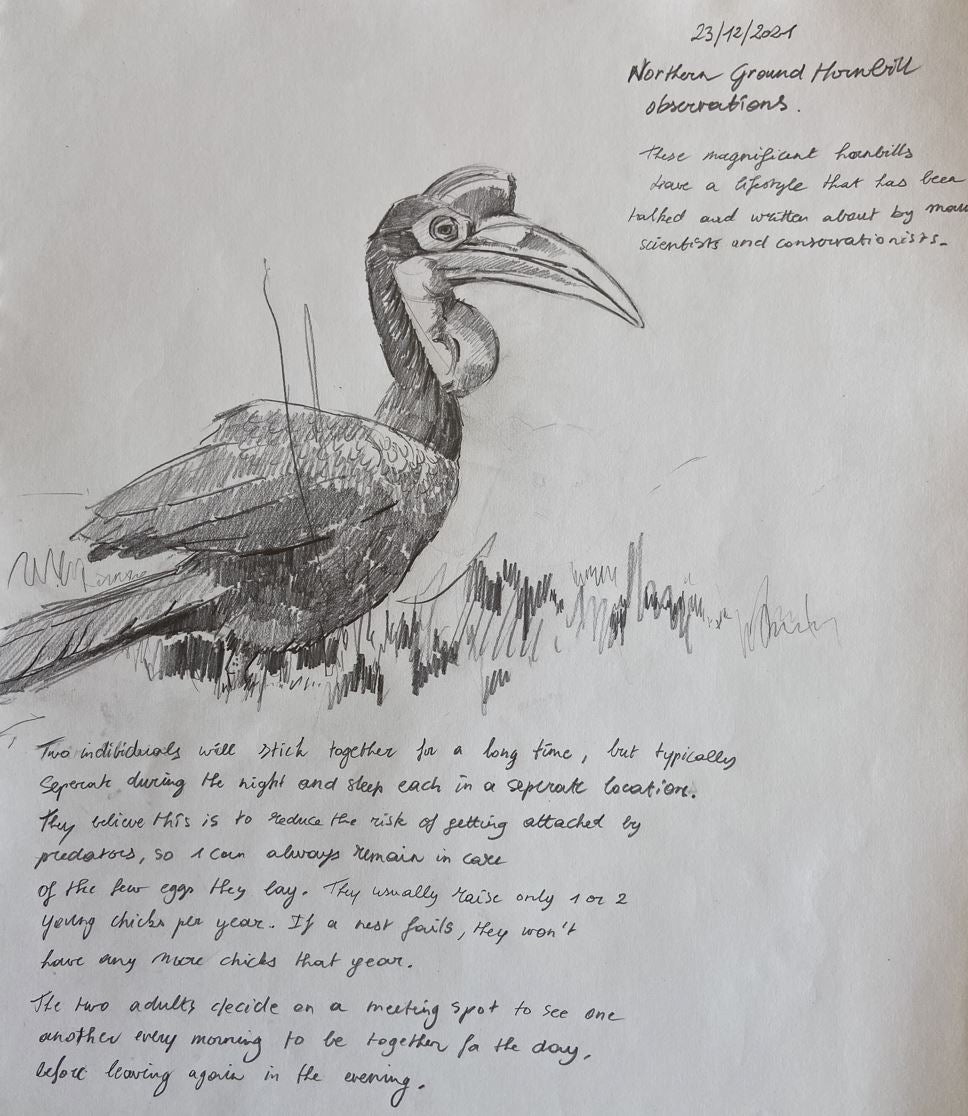 23/12/2021
Northern Ground Hornbill
observations.
These magnificent hornbills
have a lifestyle that has been
talked and written about by
scientists and conservationists.
Two indibiduals will stick together for a long time, but typically
seperate during the night and sleep each in a seperate location.
They believe this is to reduce the risk of getting attached by
predators, so 1 can always remain in care
of the few eggs they lay. They usually raise only 1 or 2
young chicks per year. If a nest fails, they won't
have any more chicks that year.
The two adults decide on a meeting spot to see one
another every morning to be together for the day,
before leaving again in the evening.